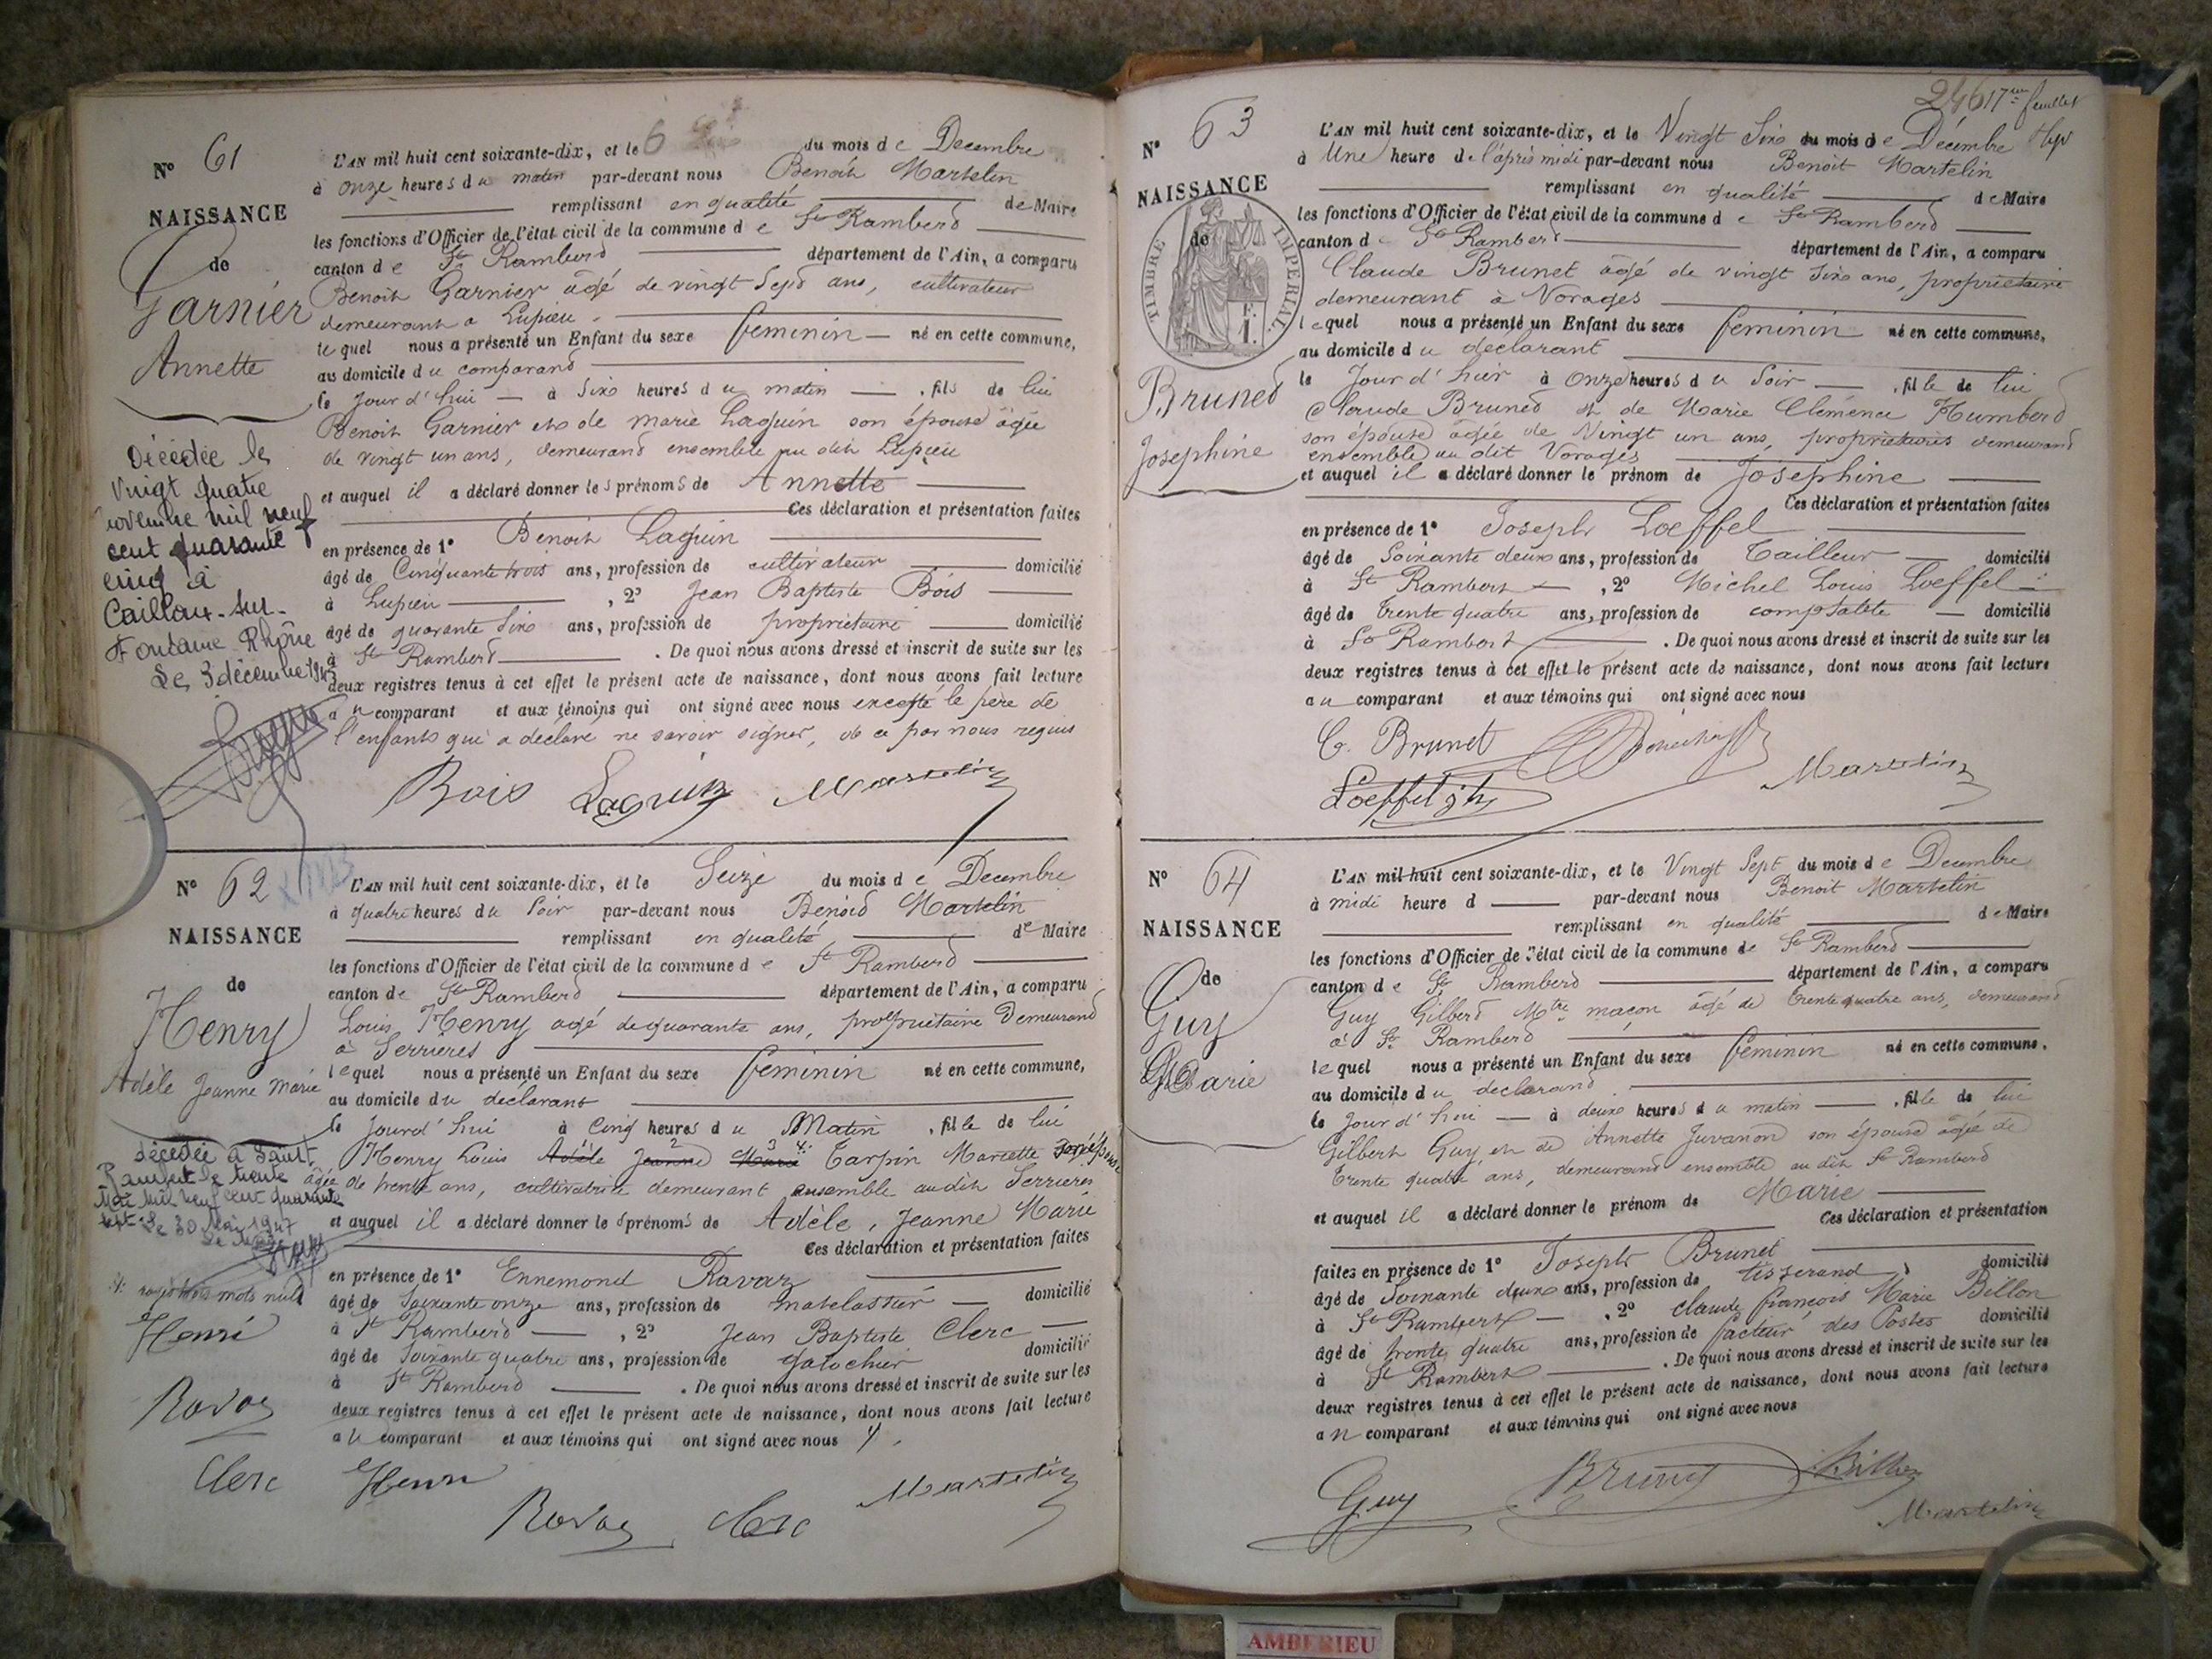 Nº 61
NAISSANCE
de
Garnier
Annette
Décédée le
Vingt quatre
novembre mil neuf
cent quarante
cinq à
Cailloux-sur-
Fontaine Rhône
Le 3 décembre 1945
L'AN mil huit cent soixante-dix, et le 6 du mois de Decembre
à onze heures du matin par-devant nous Benoit Martelin
remplissant en qualité de Maire
les fonctions d'Officier de l'état civil de la commune de St Rambert
canton de St Rambert département de l'Ain, a comparu
Benoit Garnier âgé de vingt Sept ans, cultivateur
demeurant a Lupieu
lequel nous a présenté un Enfant du sexe feminin né en cette commune,
au domicile du comparant
le Jour d'hui à Six heures du matin, fils de lui
Benoit Garnier et de marie Laguin son épouse âgée
de vingt un ans, demeurant ensemble au dit Lupieu
et auquel il a déclaré donner les prénoms de Annette
Ces déclaration et présentation faites
en présence de 1º Benoit Laguin
âgé de Cinquante trois ans, profession de cultivateur domicilié
à Lupieu, 2º Jean Baptiste Bois
âgé de quarante Six ans, profession de propriétaire domicilié
à St Rambert. De quoi nous avons dressé et inscrit de suite sur les
deux registres tenus à cet effet le présent acte de naissance, dont nous avons fait lecture
au comparant et aux témoins qui ont signé avec nous excepté le père de
l'enfant qui a déclaré ne savoir signer, de ce par nous requis
Bois Laguin Martelin
Nº 62
NAISSANCE
de
Henry
Adèle Jeanne Marie
décédée à Saint
Rambert le trente
Mai mil neuf cent quarante
sept. Le 30 Mai 1947
Le Maire
mots nuls
Henri
Ravaz
Clerc
L'AN mil huit cent soixante-dix, et le Seize du mois de Decembre
à quatre heures du Soir par-devant nous Benoit Martelin
remplissant en qualité de Maire
les fonctions d'Officier de l'état civil de la commune de St Rambert
canton de St Rambert département de l'Ain, a comparu
Louis Henry agé de quarante ans, propriétaire Demeurant
à Serrières
lequel nous a présenté un Enfant du sexe feminin né en cette commune,
au domicile du déclarant
le Jourd'hui à Cinq heures du Matin, fille de lui
Henry Louis Adèle Jeanne Marie Tarpin Mariette son épouse
âgée de trente ans, cultivatrice demeurant ensemble audit Serrieres
et auquel il a déclaré donner les prénoms de Adèle, Jeanne Marie
Ces déclaration et présentation faites
en présence de 1º Ennemond Ravaz
âgé de Soixante onze ans, profession de matelassier domicilié
à St Rambert, 2º Jean Baptiste Clerc
âgé de Soixante quatre ans, profession de galochier domicilié
à St Rambert. De quoi nous avons dressé et inscrit de suite sur les
deux registres tenus à cet effet le présent acte de naissance, dont nous avons fait lecture
au comparant et aux témoins qui ont signé avec nous
Henri Ravaz Clerc Martelin
246 17me feuillet
Nº 63
NAISSANCE
de
TIMBRE IMPERIAL
F.
1.
Brunet
Josephine
L'AN mil huit cent soixante-dix, et le Vingt Six du mois de Décembre
à Une heure de l'après midi par-devant nous Benoit Martelin
remplissant en qualité de Maire
les fonctions d'Officier de l'état civil de la commune de St Rambert
canton de St Rambert département de l'Ain, a comparu
Claude Brunet âgé de vingt Six ans, propriétaire
demeurant à Vorages
lequel nous a présenté un Enfant du sexe feminin né en cette commune,
au domicile du declarant
le Jour d'hier à Onze heures du Soir, fille de lui
Claude Brunet et de Marie Clémence Humbert
son épouse âgée de Vingt un ans, propriétaires demeurant
ensemble au dit Vorages
et auquel il a déclaré donner le prénom de Joséphine
Ces déclaration et présentation faites
en présence de 1º Joseph Loeffel
âgé de Soixante deux ans, profession de Tailleur domicilié
à St Rambert, 2º Michel Louis Loeffel
âgé de trente quatre ans, profession de comptable domicilié
à St Rambert. De quoi nous avons dressé et inscrit de suite sur les
deux registres tenus à cet effet le présent acte de naissance, dont nous avons fait lecture
au comparant et aux témoins qui ont signé avec nous
C. Brunet
Martelin
Loeffel
Nº 64
NAISSANCE
de
Guy
Marie
L'AN mil huit cent soixante-dix, et le Vingt Sept du mois de Decembre
à midi heure d par-devant nous Benoit Martelin
remplissant en qualité de Maire
les fonctions d'Officier de l'état civil de la commune de St Rambert
canton de St Rambert département de l'Ain, a comparu
Guy Gilbert Mtre maçon âgé de trente quatre ans, demeurant
à St Rambert
lequel nous a présenté un Enfant du sexe feminin né en cette commune,
au domicile du declarant
le Jour d'hui à deux heures du matin, fille de lui
Gilbert Guy et de Annette Juvanon son épouse âgée de
trente quatre ans, demeurant ensemble au dit St Rambert
et auquel il a déclaré donner le prénom de Marie
Ces déclaration et présentation
faites en présence de 1º Joseph Brunet
âgé de Soixante deux ans, profession de tisserand domicilié
à St Rambert, 2º Claude françois Marie Billon
âgé de trente quatre ans, profession de facteur des Postes domicilié
à St Rambert. De quoi nous avons dressé et inscrit de suite sur les
deux registres tenus à cet effet le présent acte de naissance, dont nous avons fait lecture
au comparant et aux témoins qui ont signé avec nous
Guy Brunet Billon
Martelin
AMBERIEU